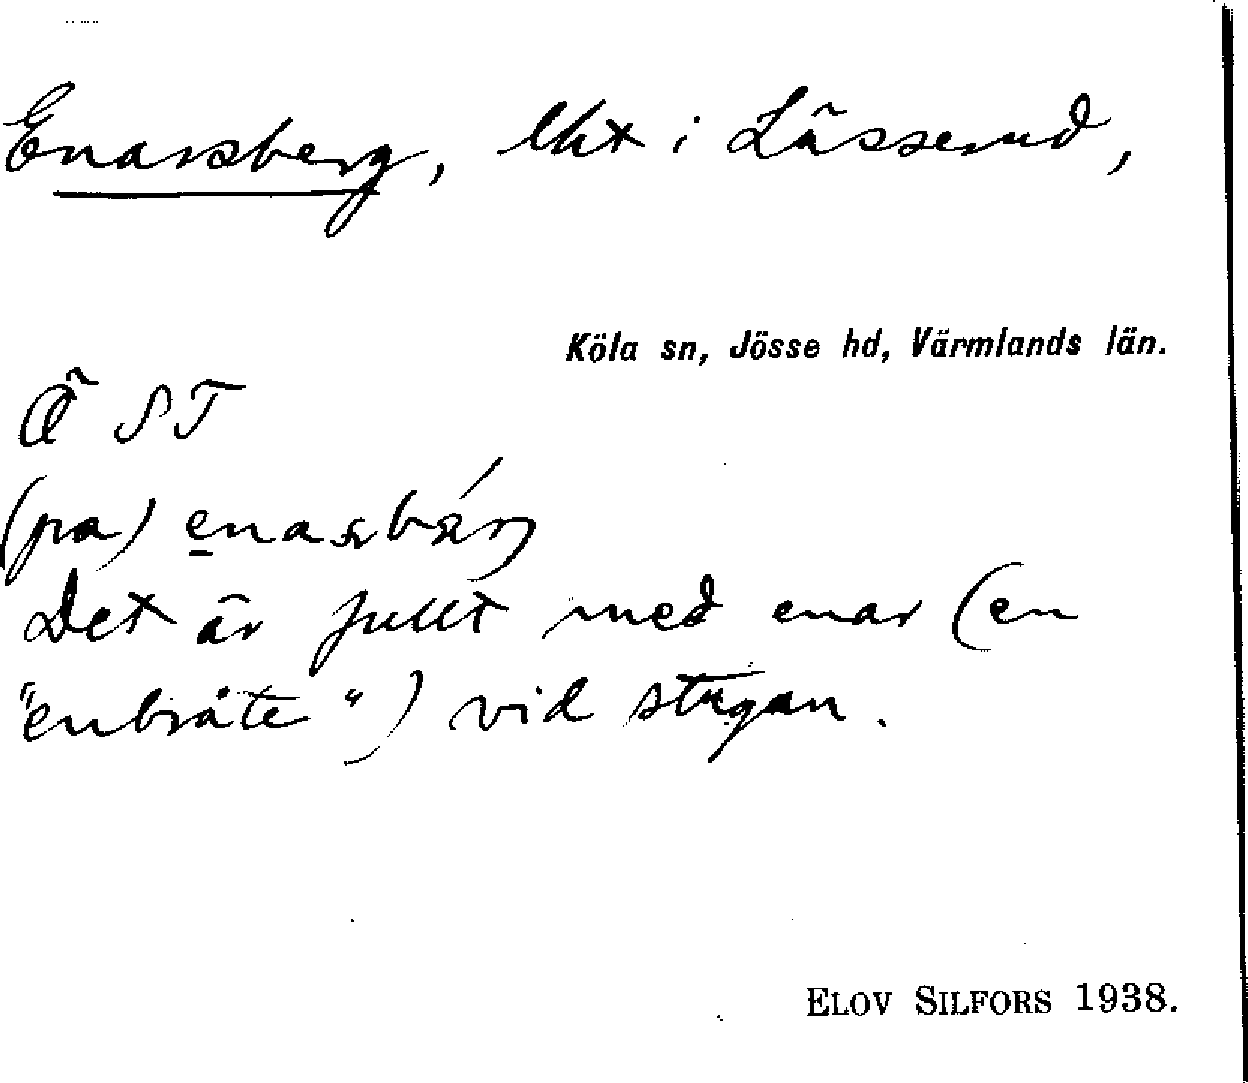 Enarsberg, lht i Lässerud,
Köla sn, Jösse hd, Värmlands län.
Ä ST
(pa) enasbär
Det är fullt med enar (en
"enbråte") vid stugan.
ELOV SILFORS 1938.